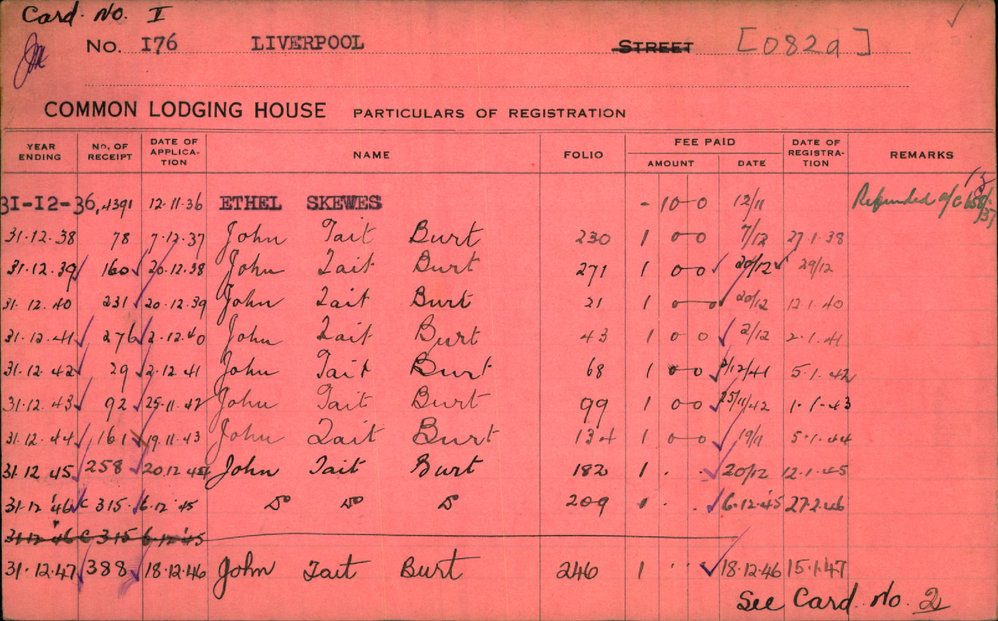 Card. No. I
No. 176 LIVERPOOL STREET [082a]
COMMON LODGING HOUSE PARTICULARS OF REGISTRATION
YEAR ENDING NO. OF RECEIPT DATE OF APPLICATION NAME FOLIO FEE PAID AMOUNT DATE DATE OF REGISTRATION REMARKS
31-12-36 4391 12.11.36 ETHEL SKEWES - 10 - 0 12/11 Refunded a/c
31.12.38 78 7.12.37 John Tait Burt 230 1 0-0 7/12 27.1.38
31.12.39 160 20.12.38 John Tait Burt 271 1 0-0 20/12 29/12
31.12.40 231 20.12.39 John Tait Burt 21 1 0-0 20/12 12.1.40
31.12.41 276 2.12.40 John Tait Burt 43 1 0-0 2/12 2.1.41
31.12.42 29 2.12.41 John Tait Burt 68 1 0-0 2/12/41 5.1.42
31.12.43 92 25.11.42 John Tait Burt 99 1 0-0 25/11/42 1.1.43
31.12.44 161 19.11.43 John Tait Burt 134 1 0-0 19/11 5.1.44
31.12.45 258 20.12.44 John Tait Burt 182 1 . . 20/12 12.1.45
31.12.46 C 315. 6.12.45 Do Do Do 209 1 . . 6.12.45 27.2.46
31.12.46 C 315 6.12.45
31.12.47 388 18.12.46 John Tait Burt 246 1 . . 18.12.46 15.1.47
See Card. No. 2